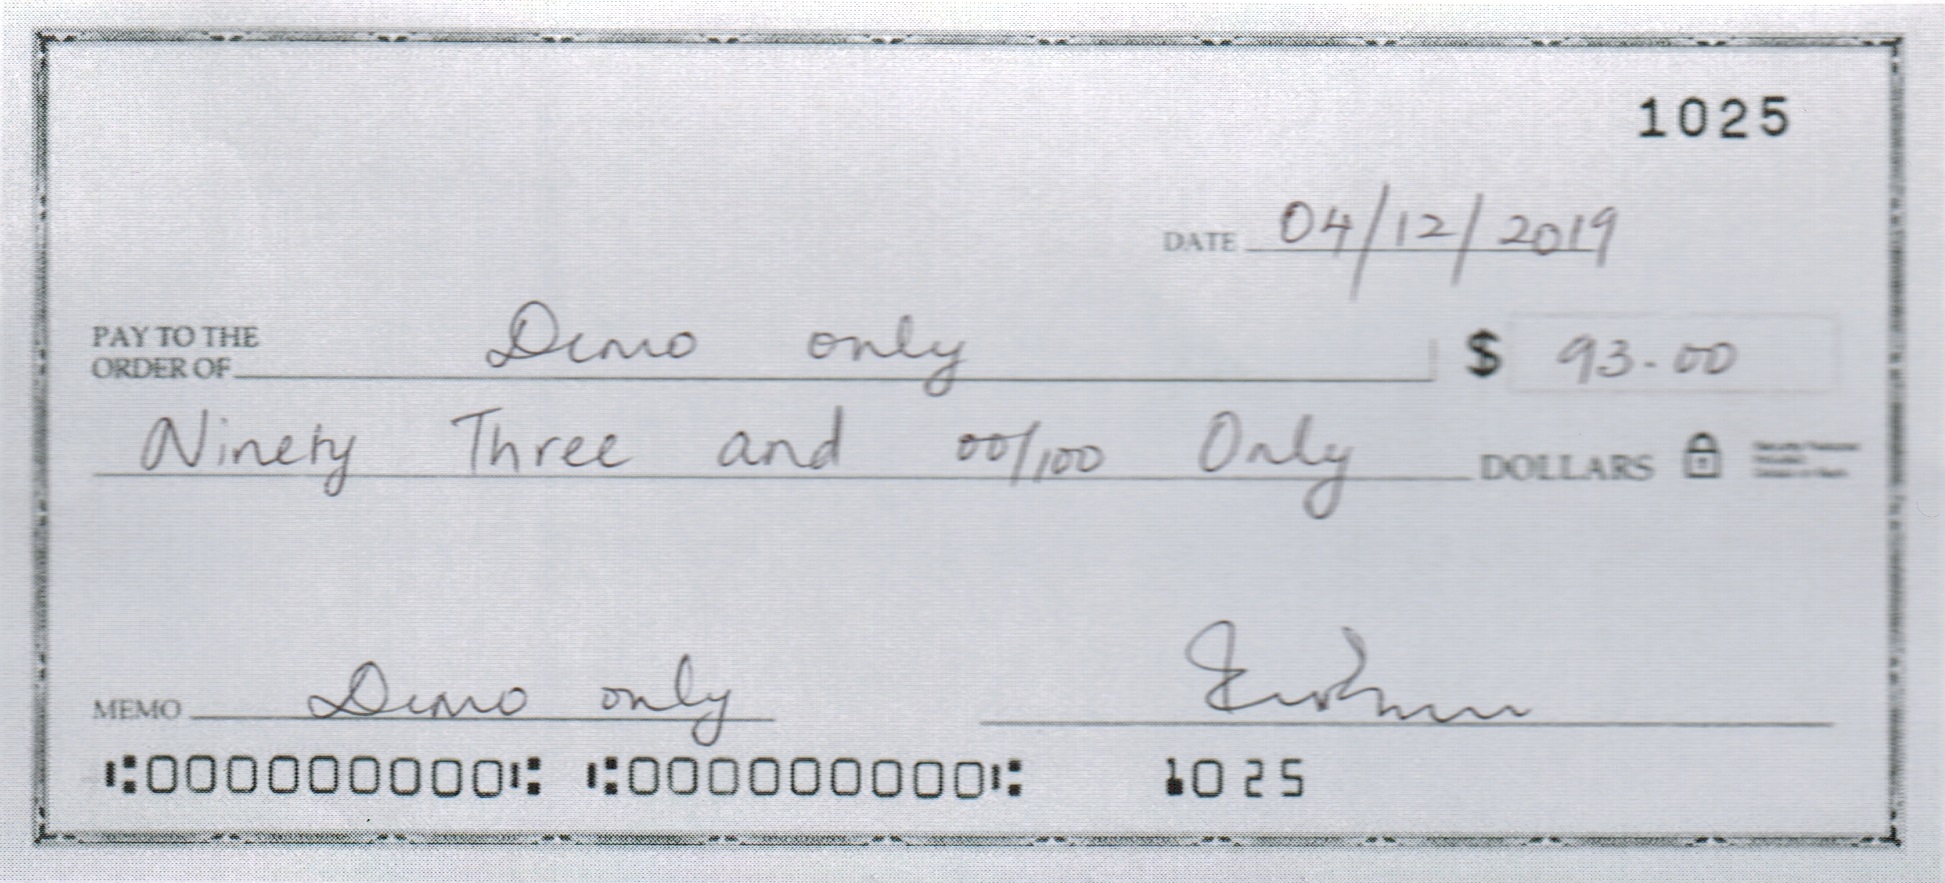 1025
DATE 04/12/2019
PAY TO THE
ORDER OF Demo only $ 93.00
Ninety Three and 00/100 Only DOLLARS
MEMO Demo only
⑆000000000⑆ ⑆000000000⑆ 1025